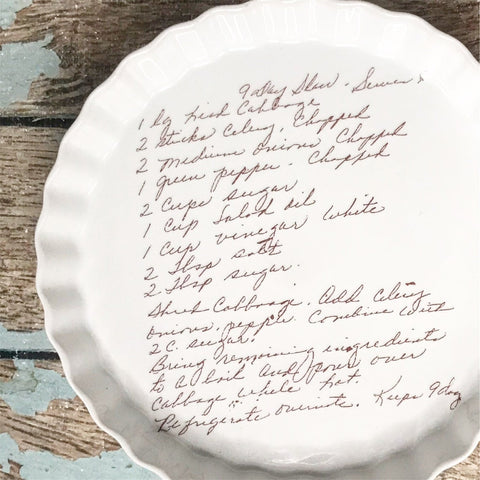 9 day Slaw - Serves
1 lg head Cabbage
2 sticks Celery, Chopped
2 medium onions Chopped
1 green pepper - Chopped
2 cups sugar
1 cup salad oil
1 cup vinegar white
2 Tbsp salt
2 Tbsp sugar.
Shred Cabbage. Add Celery
onions, pepper. Combine with
2 C. sugar.
Bring remaining ingredients
to a boil and pour over
Cabbage while hot.
Refrigerate overnite. Keeps 9 day